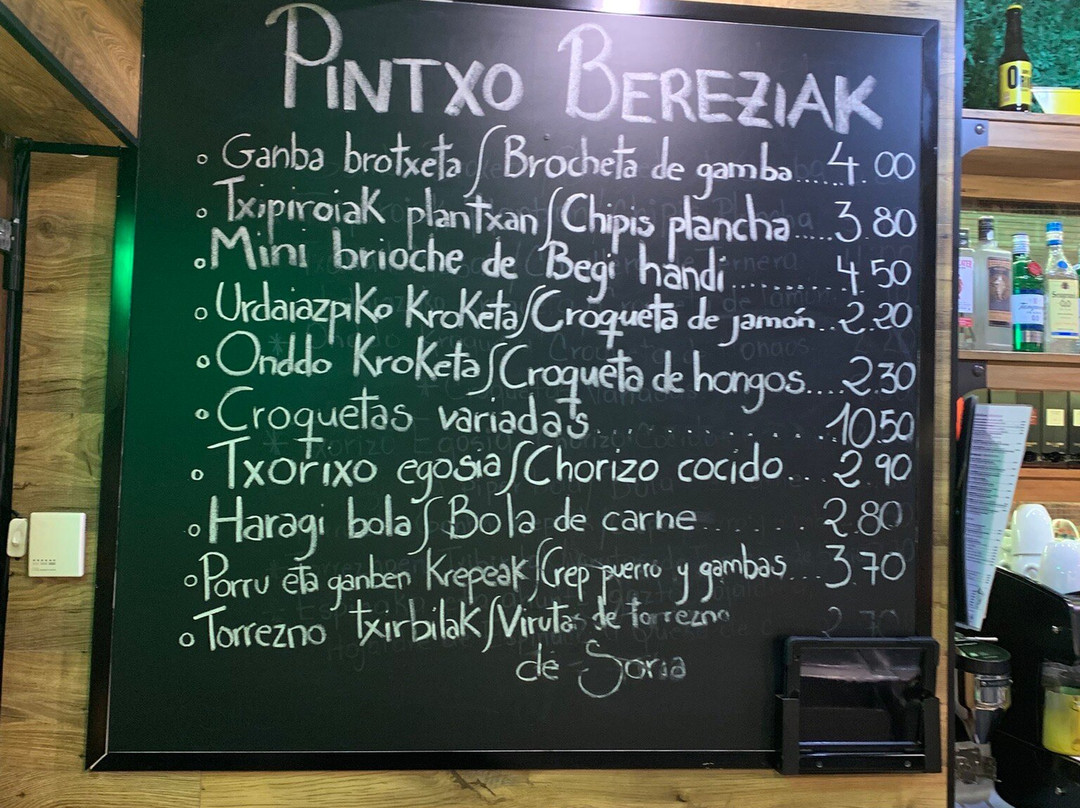 PINTXO BEREZIAK
Ganba brotxeta / Brocheta de gamba......4.00
Txipiroiak plantxan / Chipis plancha.....3.80
Mini brioche de Begi handi..........4.50
Urdaiazpiko Kroketa / Croqueta de jamón..2.20
Onddo Kroketa / Croqueta de hongos....2.30
Croquetas variadas...........10.50
Txorixo egosia / Chorizo cocido...2.90
Haragi bola / Bola de carne.......2.80
Porru eta ganben Krepeak / Crep puerro y gambas...3.70
Torrezno txirbilak / Virutas de torrezno 2.70
de Soria